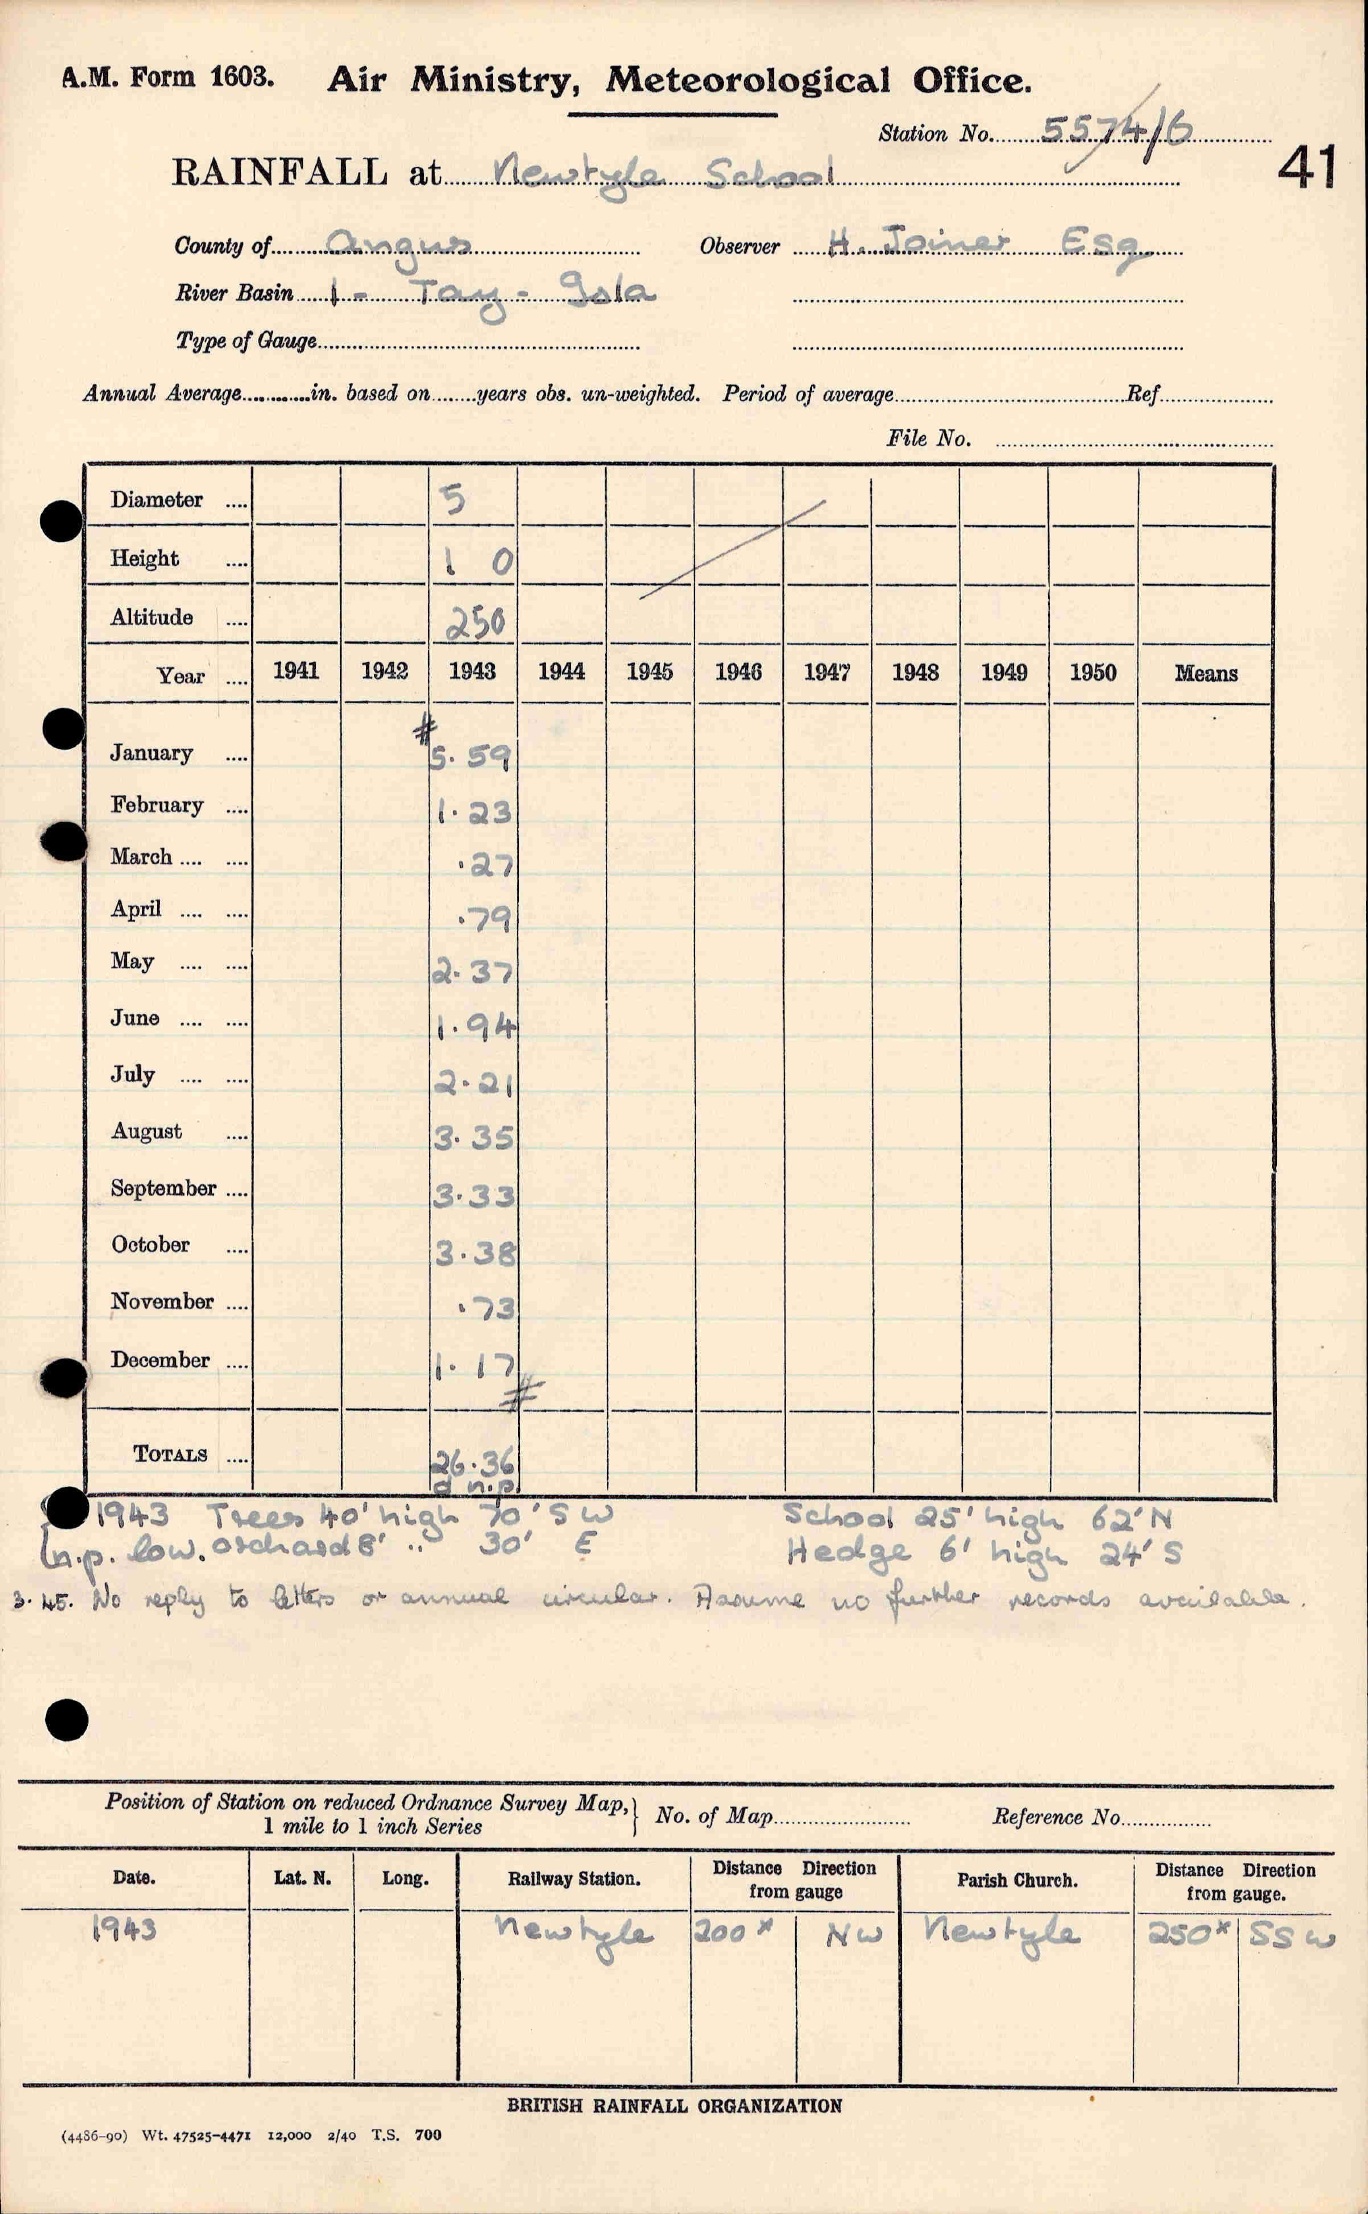 A.M. Form 1603. Air Ministry, Meteorological Office.
Station No. 5574/6
41
RAINFALL at Newtyle School
County of Angus Observer H. Joiner Esq
River Basin 1 - Tay - Isla
Type of Gauge
Annual Average in. based on years obs. un-weighted. Period of average Ref
File No.
Diameter 5
Height 1 0
Altitude 250
Year 1941 1942 1943 1944 1945 1946 1947 1948 1949 1950 Means
#
January 5.59
February 1.23
March .27
April .79
May 2.37
June 1.94
July 2.21
August 3.35
September 3.33
October 3.38
November .73
December 1.17
#
TOTALS 26.36
d n.p.
1943 Trees 40' high 70' SW School 25' high 62' N
n.p. low. orchard 8' " 30' E Hedge 6' high 24' S
3.45. No reply to letters or annual circular. Assume no further records available.
Position of Station on reduced Ordnance Survey Map, } No. of Map Reference No.
1 mile to 1 inch Series
Date. Lat. N. Long. Railway Station. Distance Direction from gauge Parish Church. Distance Direction from gauge.
1943 Newtyle 200x NW Newtyle 250x SSW
BRITISH RAINFALL ORGANIZATION
(4486-90) Wt. 47525-4471 12,000 2/40 T.S. 700